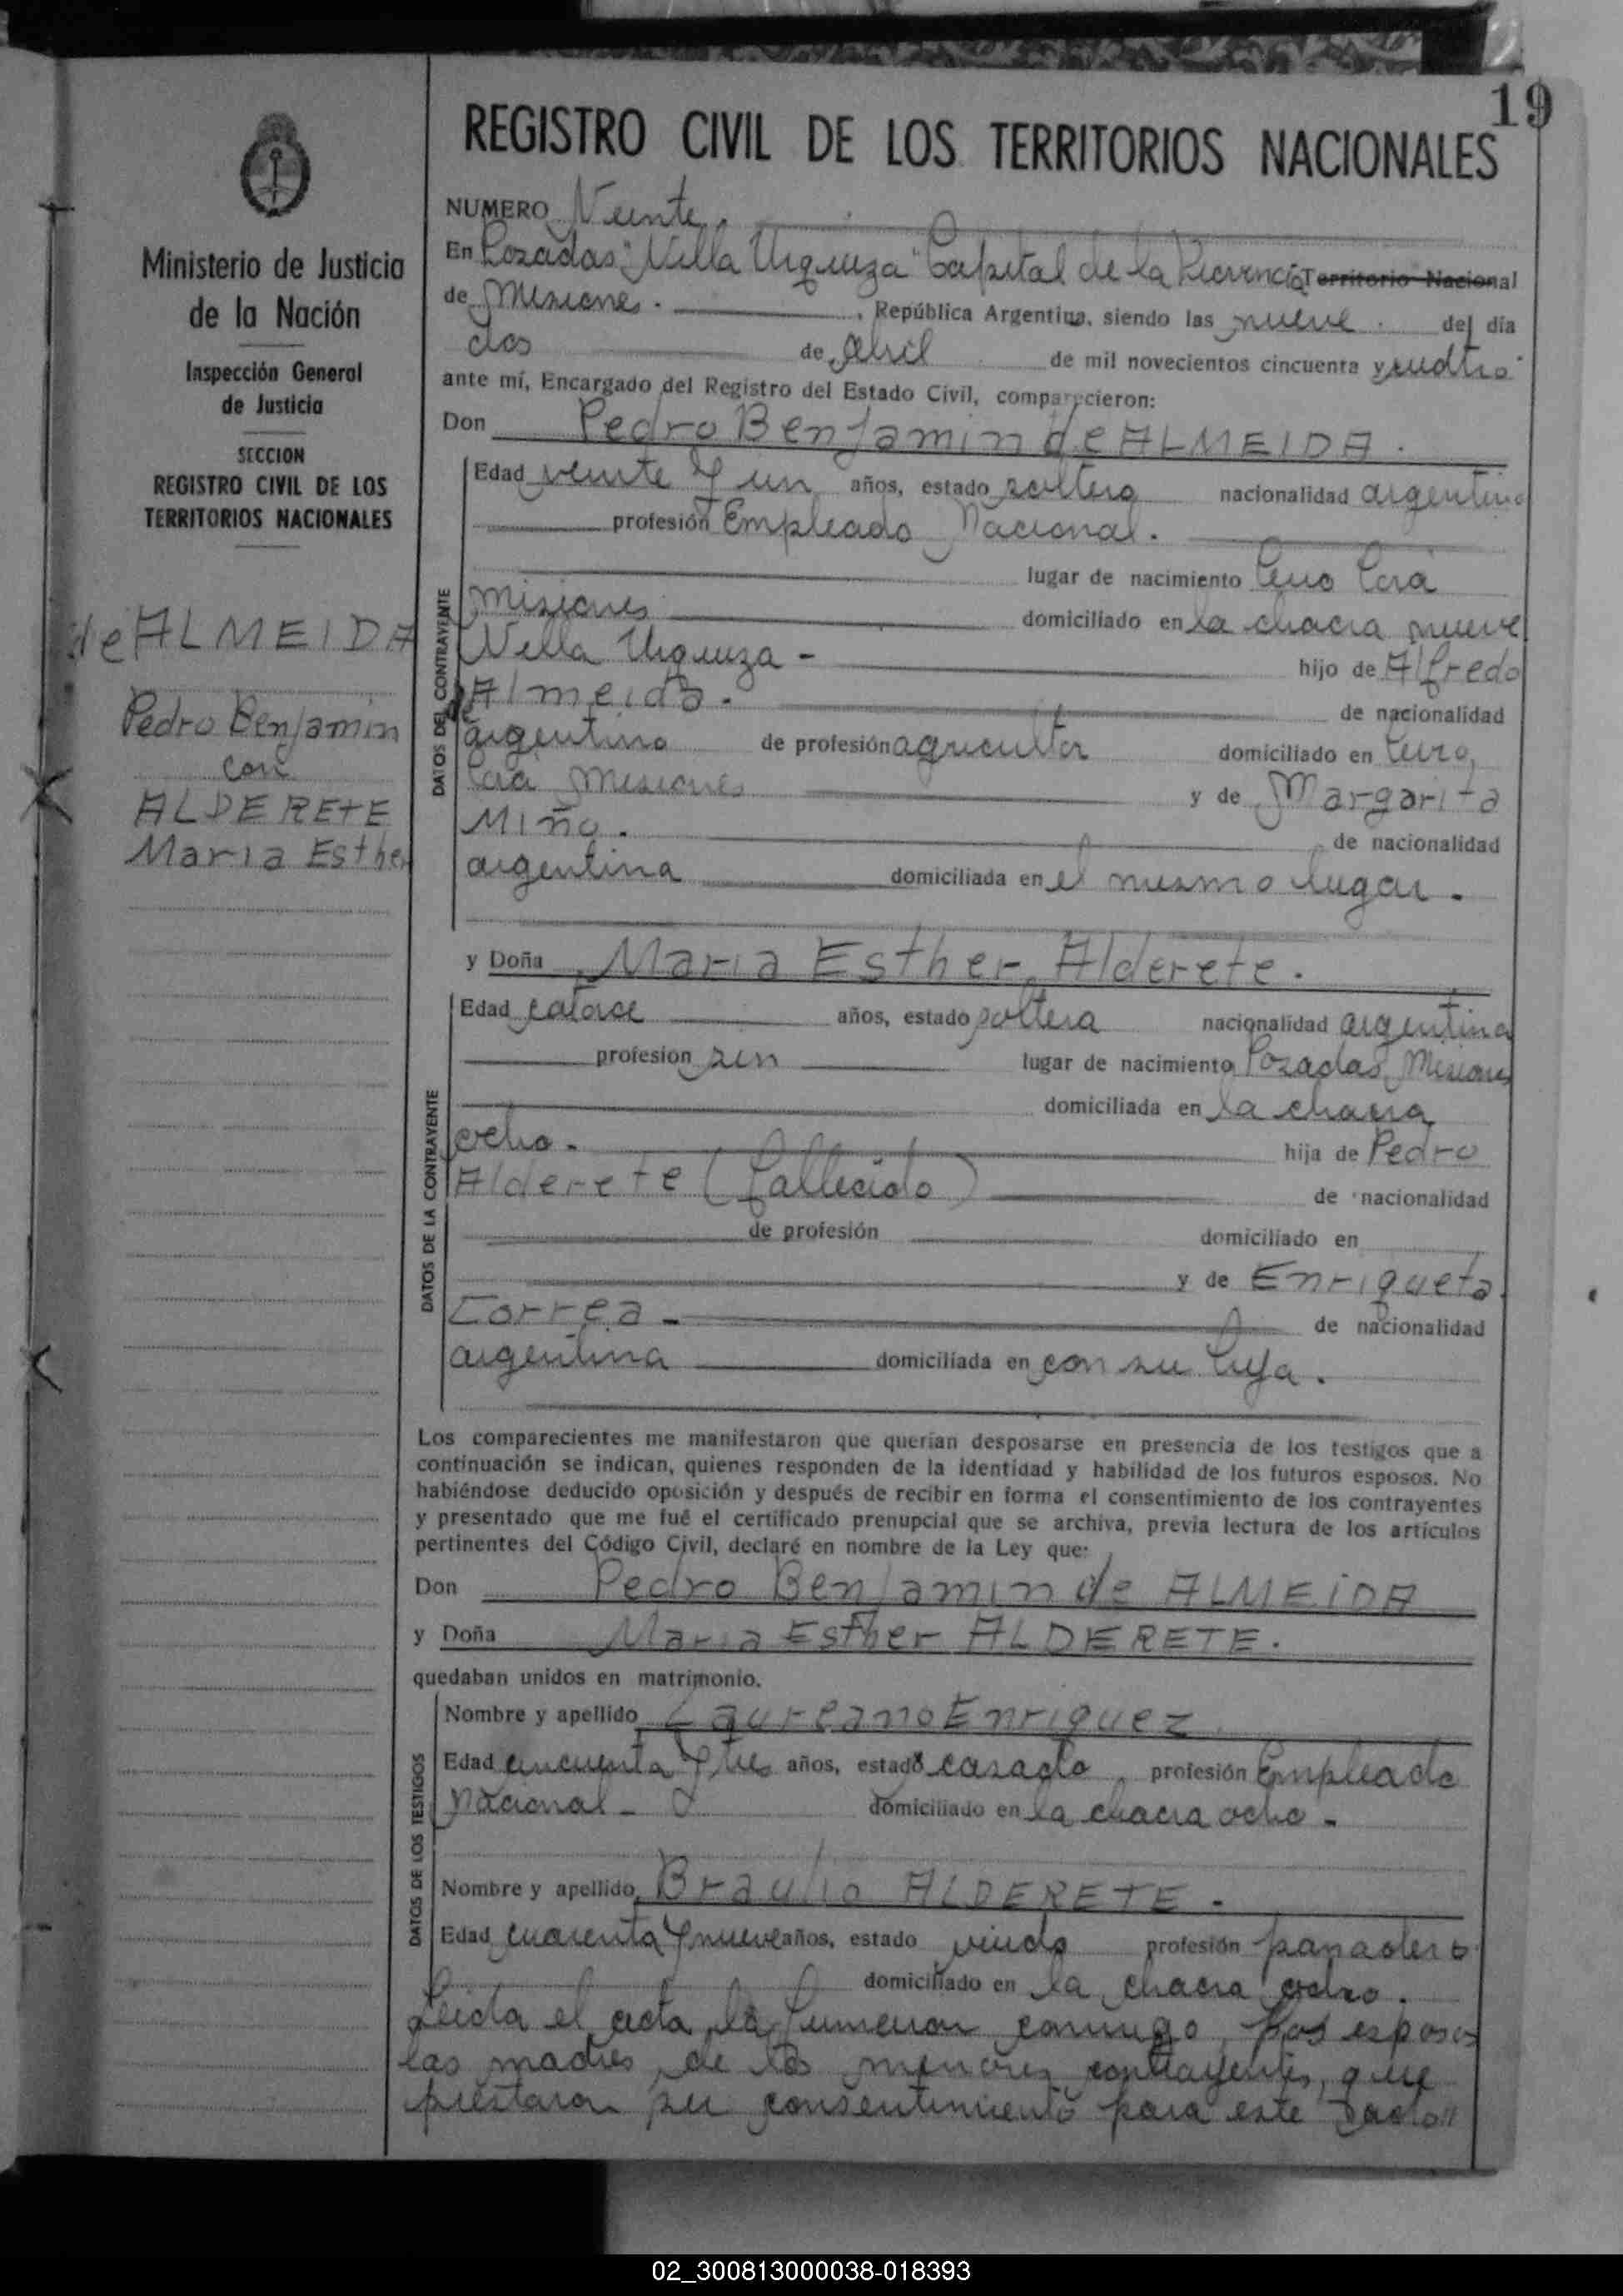 19
REGISTRO CIVIL DE LOS TERRITORIOS NACIONALES
Ministerio de Justicia
de la Nación
Inspección General
de Justicia
SECCION
REGISTRO CIVIL DE LOS
TERRITORIOS NACIONALES
de ALMEIDA
Pedro Benjamin
con
ALDERETE
Maria Esther
NUMERO Veinte.
En Pozadas "Villa Urquiza" Capital de la Provincia Territorio Nacional
de Misiones. , República Argentina, siendo las nueve. del día
dos de Abril de mil novecientos cincuenta y cuatro
ante mí, Encargado del Registro del Estado Civil, comparecieron:
Don Pedro Benjamin de ALMEIDA.
DATOS DEL CONTRAYENTE
Edad veinte y un años, estado soltero nacionalidad argentino
profesión Empleado Nacional.
lugar de nacimiento Cerro Corá
misiones domiciliado en la chacra nueve
Villa Urquiza - hijo de Alfredo
de Almeida. de nacionalidad
argentino de profesión agricultor domiciliado en Cerro,
Corá Misiones y de Margarita
Miño. de nacionalidad
argentina domiciliada en el mismo lugar.
y Doña Maria Esther Alderete.
DATOS DE LA CONTRAYENTE
Edad catorce años, estado soltera nacionalidad argentina
profesion sin lugar de nacimiento Pozadas, Misiones
domiciliada en la chacra
ocho. hija de Pedro
Alderete (fallecido) de nacionalidad
de profesión domiciliado en
y de Enriqueta
Correa - de nacionalidad
argentina domiciliada en con su hija.
Los comparecientes me manifestaron que querían desposarse en presencia de los testigos que a
continuación se indican, quienes responden de la identidad y habilidad de los futuros esposos. No
habiéndose deducido oposición y después de recibir en forma el consentimiento de los contrayentes
y presentado que me fué el certificado prenupcial que se archiva, previa lectura de los artículos
pertinentes del Código Civil, declaré en nombre de la Ley que:
Don Pedro Benjamin de ALMEIDA
y Doña Maria Esther ALDERETE.
quedaban unidos en matrimonio.
DATOS DE LOS TESTIGOS
Nombre y apellido Laureano Enriquez
Edad cincuenta y tres años, estado casado profesión Empleado
nacional - domiciliado en la chacra ocho -
Nombre y apellido Braulio ALDERETE -
Edad cuarenta y nueve años, estado viudo profesión panadero
domiciliado en la chacra ocho.
Leida el acta, la firmaron conmigo, los esposos
las madres de los menores contrayentes, que
prestaron su consentimiento para este acto
02_300813000038-018393